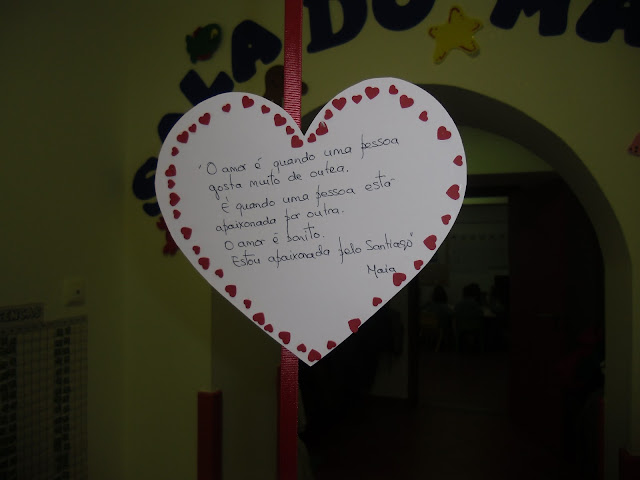 SALA DO MA
"O amor é quando uma pessoa
gosta muito de outra.
É quando uma pessoa está
apaixonada por outra.
O amor é bonito.
Estou apaixonada pelo Santiago"
Maia